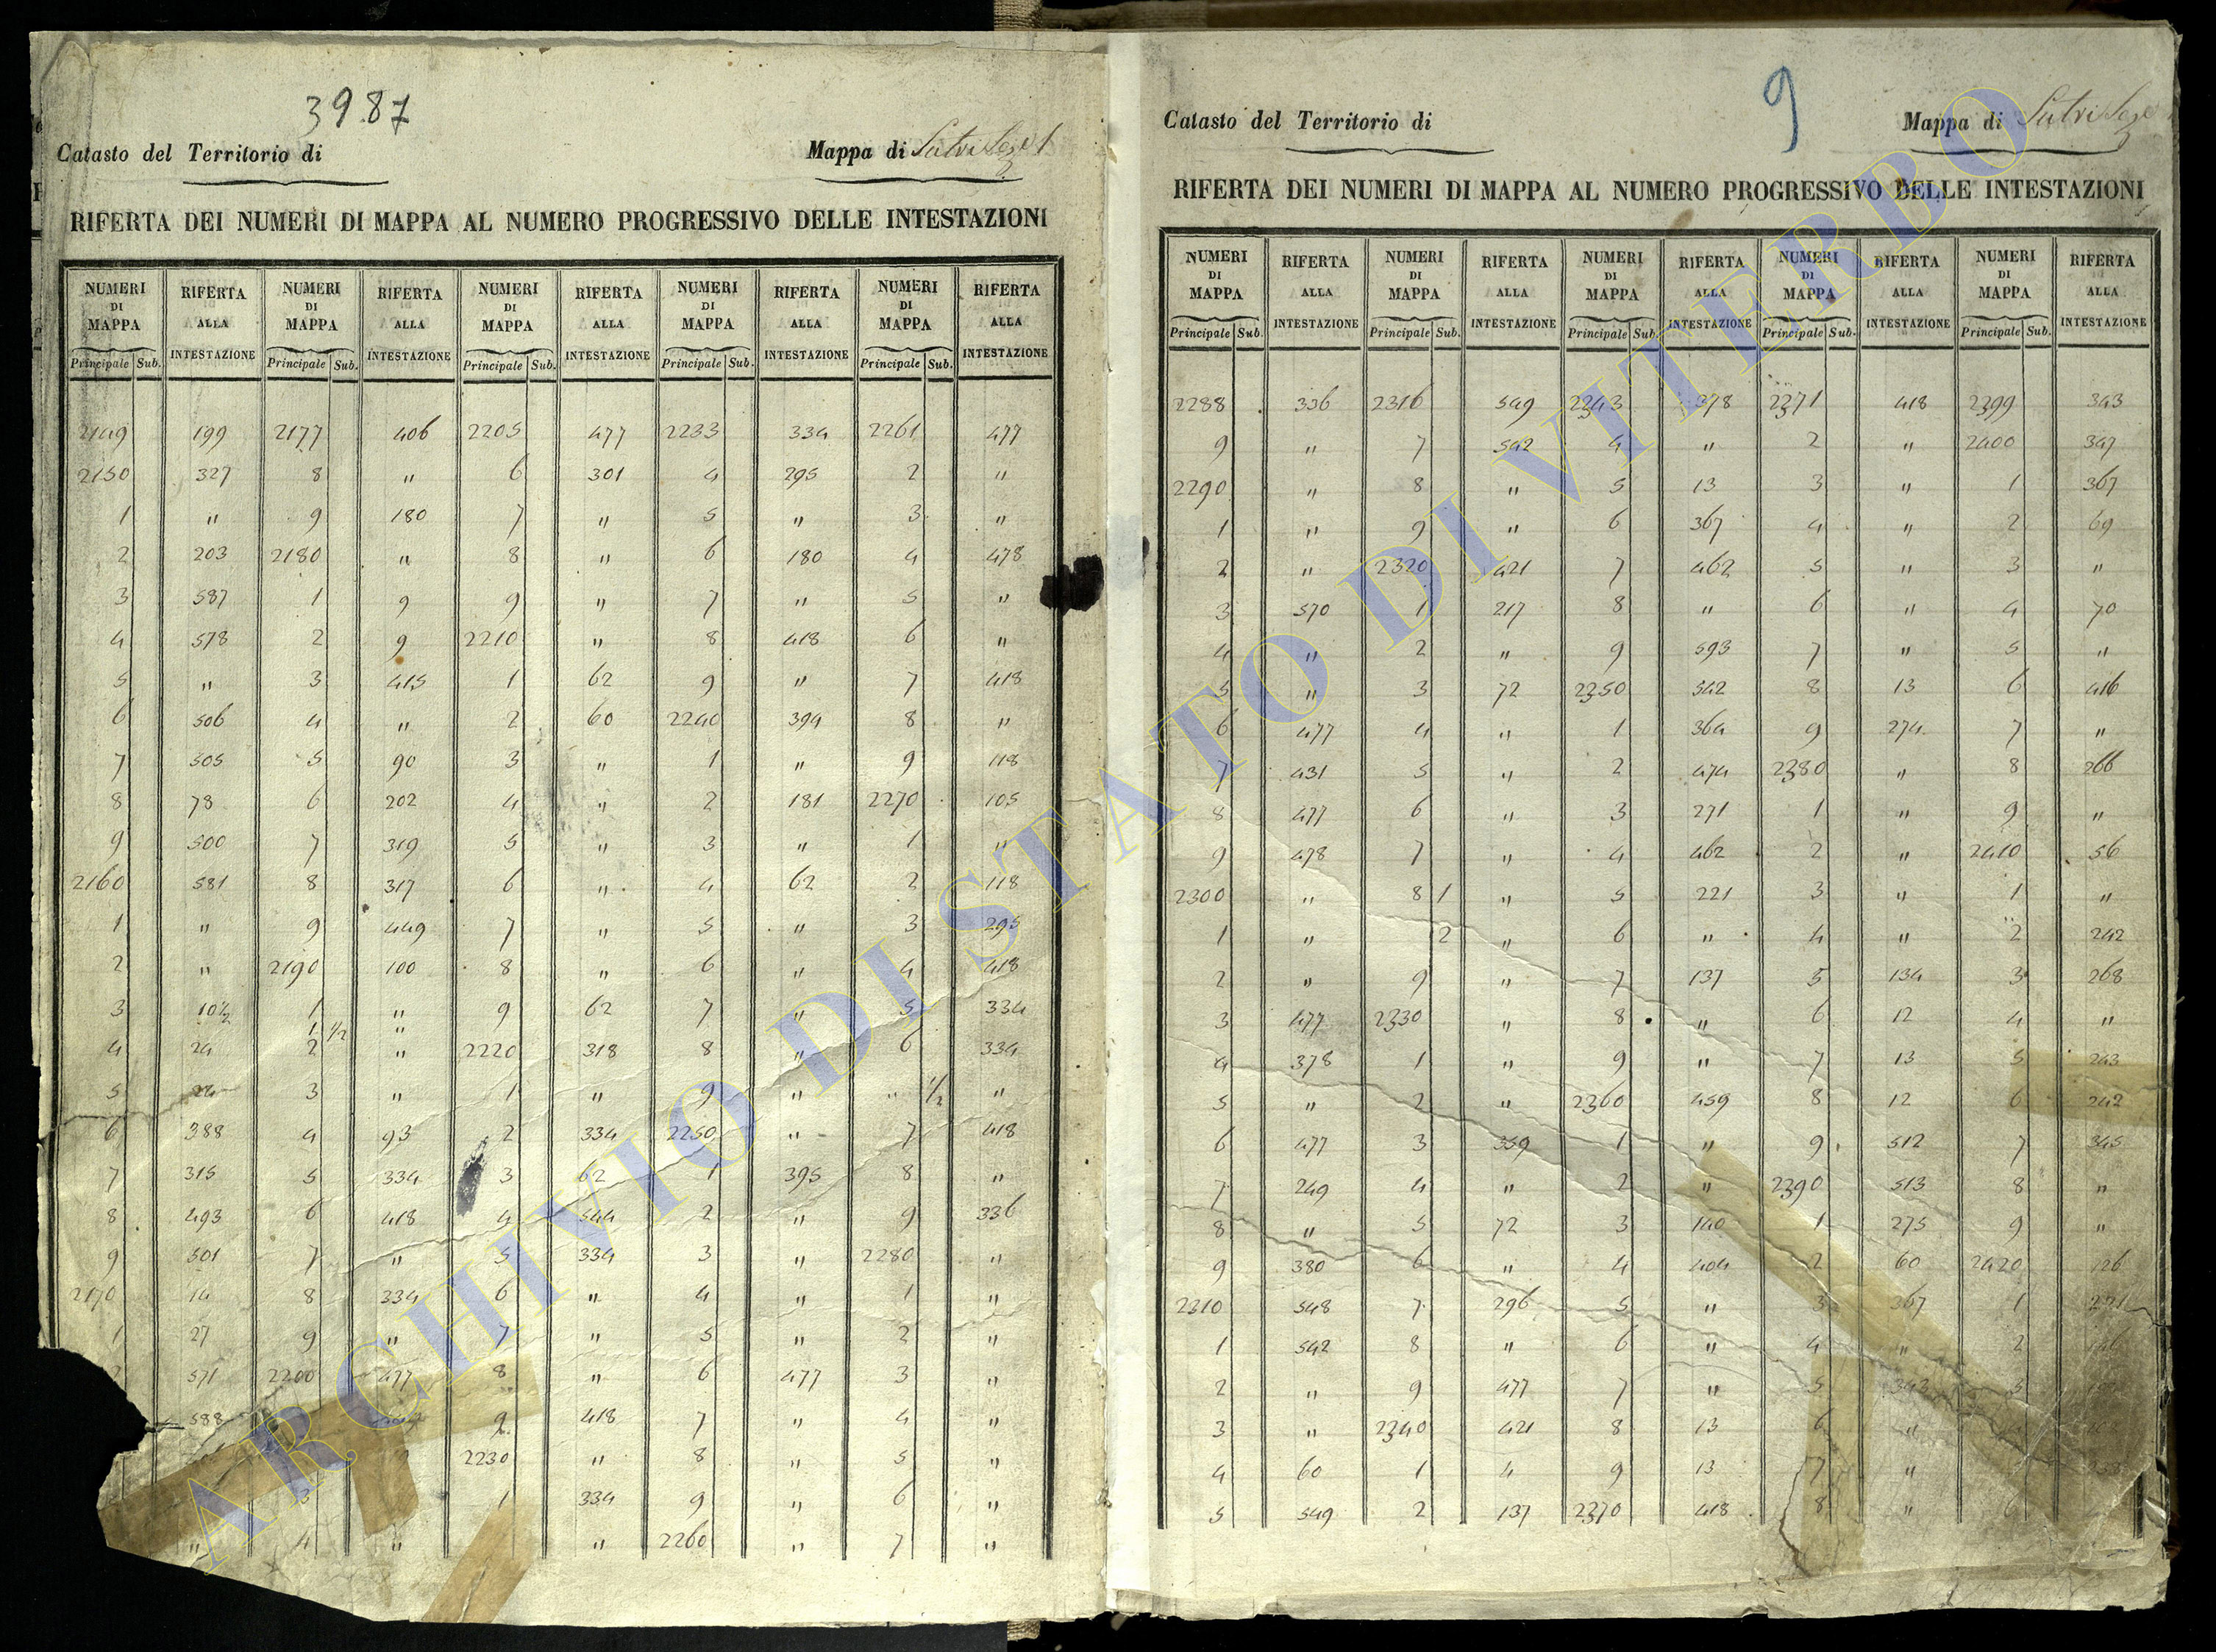 3987
Catasto del Territorio di
Mappa di Sutri Sez 1
RIFERTA DEI NUMERI DI MAPPA AL NUMERO PROGRESSIVO DELLE INTESTAZIONI
NUMERI DI MAPPA RIFERTA ALLA INTESTAZIONE NUMERI DI MAPPA RIFERTA ALLA INTESTAZIONE NUMERI DI MAPPA RIFERTA ALLA INTESTAZIONE NUMERI DI MAPPA RIFERTA ALLA INTESTAZIONE NUMERI DI MAPPA RIFERTA ALLA INTESTAZIONE
Principale Sub. Principale Sub. Principale Sub. Principale Sub. Principale Sub.
2149 199 2177 406 2205 477 2233 334 2261 477
2150 327 8 " 6 301 4 295 2 "
1 " 9 180 7 " 5 " 3 "
2 203 2180 " 8 " 6 180 4 478
3 587 1 9 9 " 7 " 5 "
4 578 2 9 2210 " 8 418 6 "
5 " 3 415 1 62 9 " 7 418
6 506 4 " 2 60 2240 394 8 "
7 505 5 90 3 " 1 " 9 118
8 78 6 202 4 " 2 181 2270 105
9 500 7 319 5 " 3 " 1 "
2160 581 8 317 6 " 4 62 2 118
1 " 9 449 7 " 5 " 3 295
2 " 2190 100 8 " 6 " 4 418
3 10½ 1 " 9 62 7 " 5 334
1 ½ "
4 24 2 " 2220 318 8 " 6 334
5 24 3 " 1 " 9 " " ½ "
6 388 4 93 2 334 2250 " 7 418
7 315 5 334 3 62 1 395 8 "
8 493 6 418 4 544 2 " 9 336
9 501 7 " 5 334 3 " 2280 "
2170 14 8 334 6 " 4 " 1 "
1 27 9 " 7 " 5 " 2 "
2 571 2200 477 8 " 6 477 3 "
588 9 418 7 " 4 "
2230 " 8 " 5 "
3 1 334 9 " 6 "
" 4 " " 2260 " 7 "
9
Catasto del Territorio di
Mappa di Sutri Sez
RIFERTA DEI NUMERI DI MAPPA AL NUMERO PROGRESSIVO DELLE INTESTAZIONI
NUMERI DI MAPPA RIFERTA ALLA INTESTAZIONE NUMERI DI MAPPA RIFERTA ALLA INTESTAZIONE NUMERI DI MAPPA RIFERTA ALLA INTESTAZIONE NUMERI DI MAPPA RIFERTA ALLA INTESTAZIONE NUMERI DI MAPPA RIFERTA ALLA INTESTAZIONE
Principale Sub. Principale Sub. Principale Sub. Principale Sub. Principale Sub.
2288 336 2316 549 2343 378 2371 418 2399 343
9 " 7 542 4 " 2 " 2400 347
2290 " 8 " 5 13 3 " 1 367
1 " 9 " 6 367 4 " 2 69
2 " 2320 421 7 462 5 " 3 "
3 570 1 217 8 " 6 " 4 70
4 " 2 " 9 593 7 " 5 "
5 " 3 72 2350 542 8 13 6 416
6 477 4 " 1 364 9 274 7 "
7 431 5 " 2 474 2380 " 8 266
8 477 6 " 3 271 1 " 9 "
9 478 7 " 4 462 2 " 2410 56
2300 " 8 1 " 5 221 3 " 1 "
1 " 2 " 6 " 4 " 2 242
2 " 9 " 7 137 5 134 3 268
3 477 2330 " 8 " 6 12 4 "
4 378 1 " 9 " 7 13 5 243
5 " 2 " 2360 459 8 12 6 242
6 477 3 359 1 " 9 512 7 345
7 249 4 " 2 " 2390 513 8 "
8 " 5 72 3 140 1 275 9 "
9 380 6 " 4 404 2 60 2420 126
2310 548 7 296 5 " 3 367 1 271
1 542 8 " 6 " 4 " 2
2 " 9 477 7 " 5 343 3
3 " 2340 421 8 13 6 "
4 60 1 4 9 13 7 "
5 549 2 137 2370 418 8 " 6
ARCHIVIO DI STATO DI VITERBO